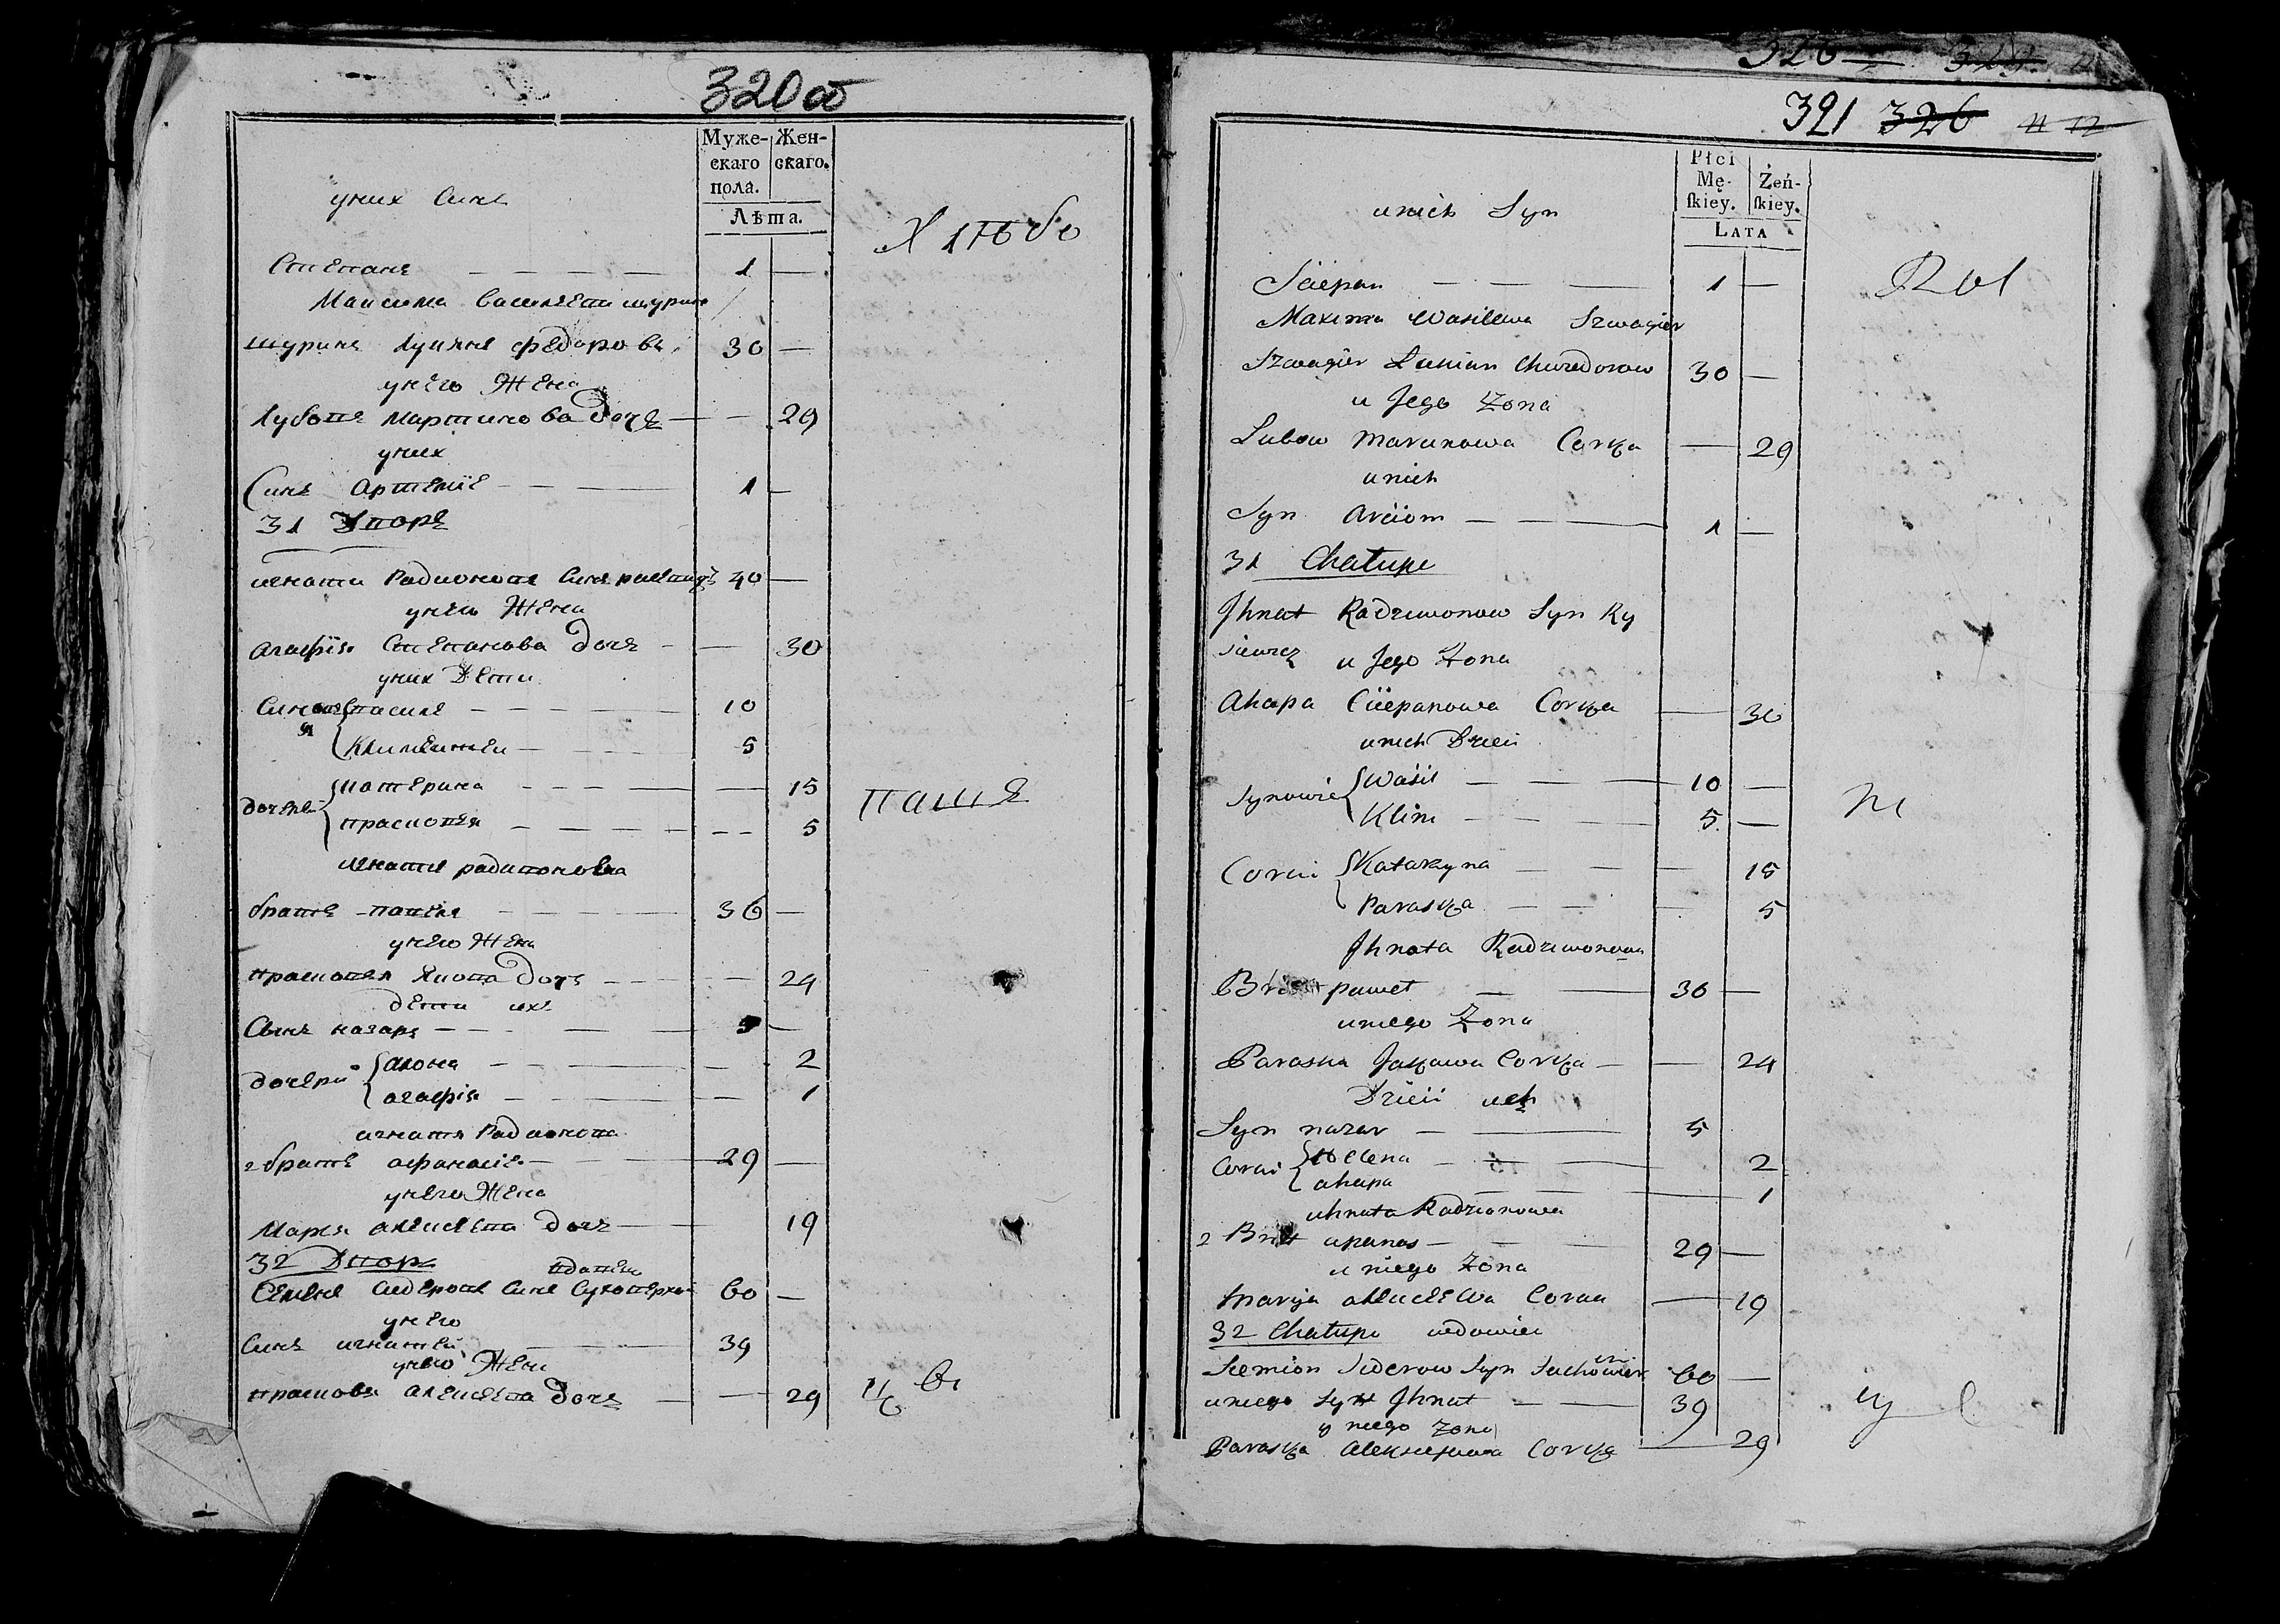 320 об
Муже-
скаго
пола.
Жен-
скаго.
Лѣта.
уних Синъ
Степанъ 1 —
Максима Василева шурин
шуринъ Лукянъ Федорова 30 —
унего Жена
Лубовъ Мартинова дочъ — 29
уних
Синъ Артемiе 1 —
31 Дворъ
игнати Радионовъ Синъ 40 —
унего Жена
агафiя Степанова дочъ — 30
уних Дети
василе 10
Климентеи 5
дочери
катерина — 15
прасковя — 5
игнатя радивонова
братъ павел 36 —
унего Жена
прасковея Якова дочъ — 24
дети их
Сынъ назаръ 5 —
дочери
алона — 2
агафiя — 1
игнатя Радионова
2 братъ афанасiе 29 —
унего Жена
Маря алексеева дочъ — 19
32 Двор
Семенъ Сидеровъ Синъ 60 —
унего
Синъ игнатеи 39
унего Жена
прасковя алексеева дочъ — 29
321 326
Płci
Mę-
ſkiey.
Żeń-
ſkiey.
LATA
unich Syn
Sciepan 1 —
Maxima Wasilewa Szwagier
Szwagier Łukian Chwedorow 30 —
u Jego Zona
Lubow Marcinowa Corka — 29
unich
Syn Arciom 1 —
31 Chałupa
Jhnat Radziwonow Syn Ry
siewcz u Jego Zona
Ahapa Sciepanowa Corka — 30
unich Dzieci
Synowie
Wasil 10 —
Klim 5 —
Corki
Katarzyna — 15
Paraska — 5
Jhnata Radziwonowa
Brat paweł 36 —
uniego Zona
Paraska Jakowa Corka — 24
Dzieci ich
Syn nazar 5
Corki
Helena 2
ahapa 1
uhnata Radzionowa
2 Brat apanas 29 —
u niego Zona
Marija alekseiewa Corka — 19
32 Chałupa wdowiec
Siemion Siderow Syn 60 —
uniego Syn Jhnat 39
y niego Zona
Paraska Aleksiejewa Corka — 29